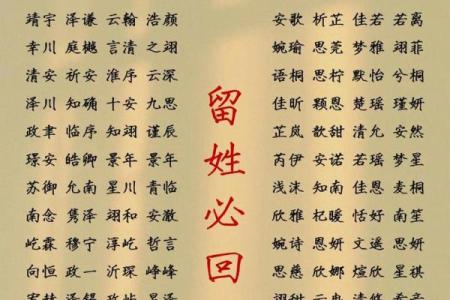 靖宇 泽谦 云翰 浩颜
幸川 庭樾 言清 之翊
清安 祈安 淮序 云深
泽川 知确 十安 九思
政聿 临序 知翊 谨辰
璟安 皓卿 景年 景年
苏御 允南 星川 青临
南念 隽泽 翊和 安澈
屹霖 穆宁 淳屹 哲言
向恒 政一 沂琛 峥峰
留姓必回
安歌 析芷 佳若 若离
婉瑜 思莞 梦雅 翊菲
语桐 思柠 默怡 兮桐
佳昕 颖恩 楚瑶 瑾妍
芷岚 歆甜 清允 安然
芮伊 安诺 若瑶 梦星
浅沫 知南 佳恩 麦桐
欣雅 杞暖 恬好 南笙
婉诗 恩妍 文遥 思妍
思慈 欣娜 煊熠 希曼